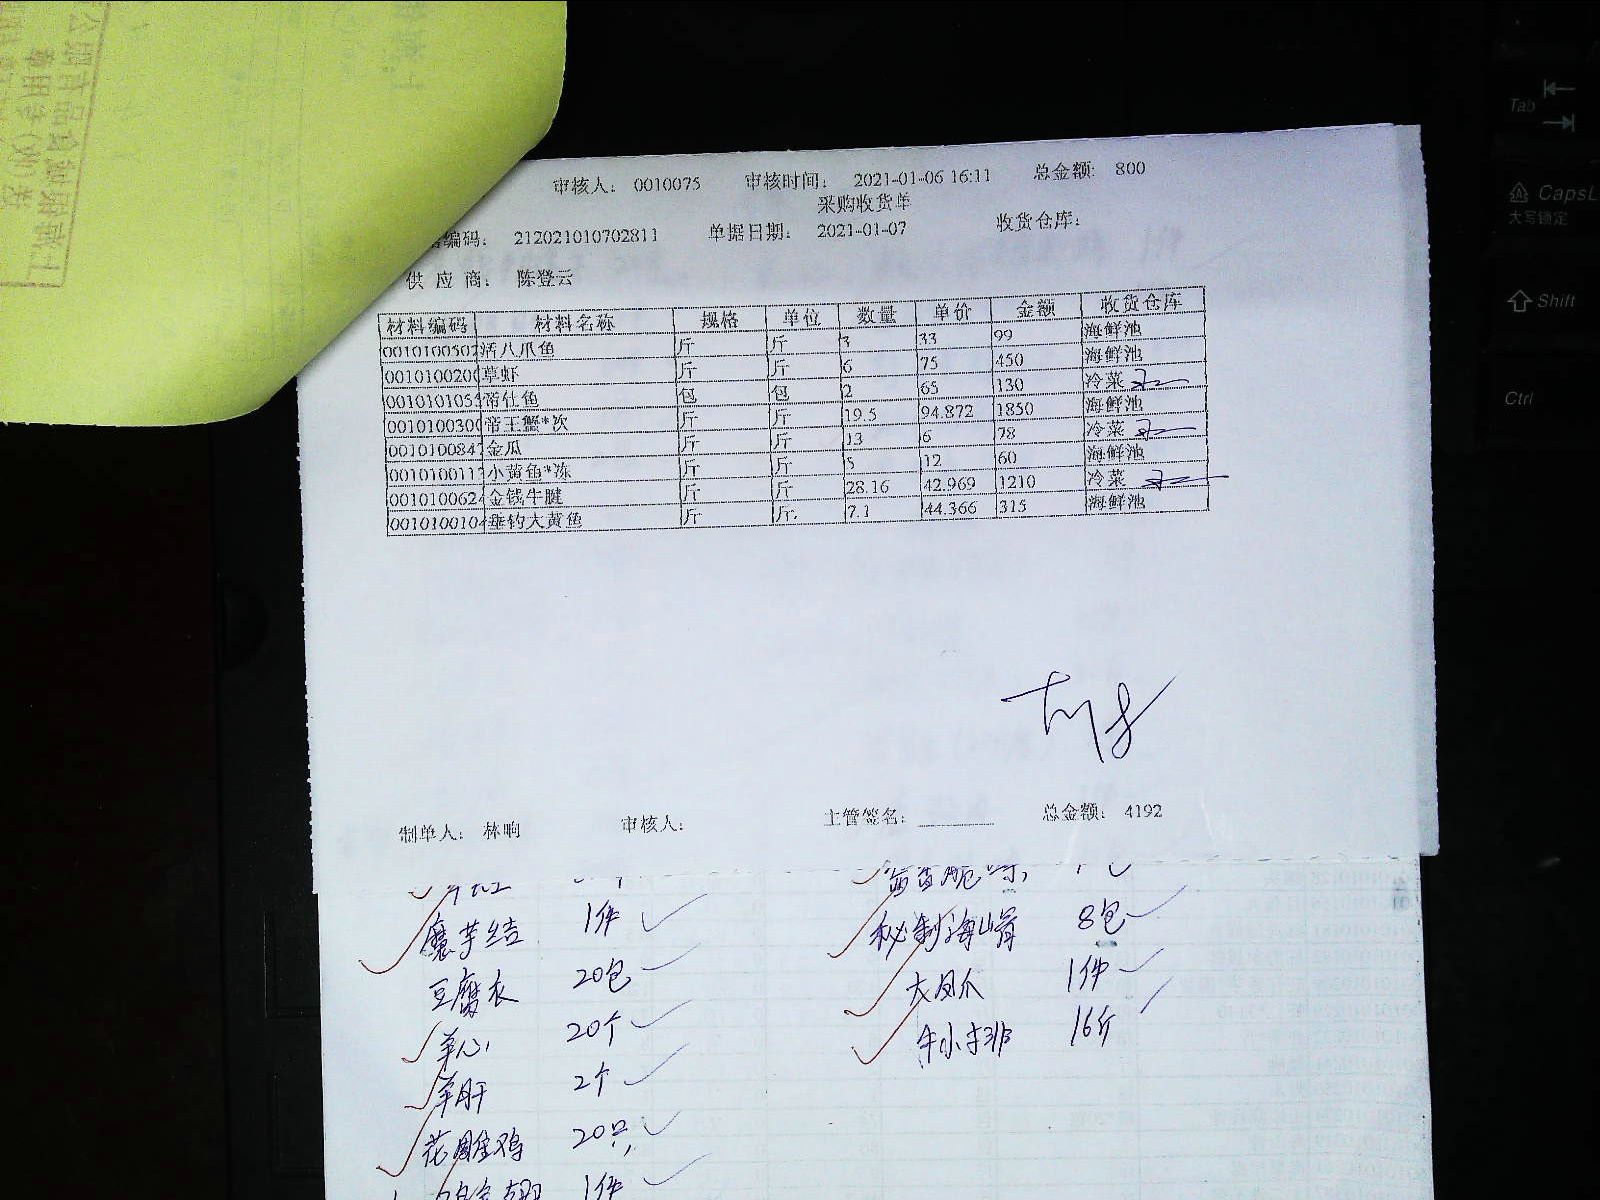 审核人: 0010075 审核时间: 2021-01-06 16:11 总金额: 800
采购收货单
编码: 212021010702811 单据日期: 2021-01-07 收货仓库:
供 应 商: 陈登云
材料编码 材料名称 规格 单位 数量 单价 金额 收货仓库
001010050 活八爪鱼 斤 斤 3 33 99 海鲜池
001010020 草虾 斤 斤 6 75 450 海鲜池
001010105 帝仕鱼 包 包 2 65 130 冷菜
001010030 帝王蟹*次 斤 斤 19.5 94.872 1850 海鲜池
001010084 金瓜 斤 斤 13 6 78 冷菜
001010011 小黄鱼*冻 斤 斤 5 12 60 海鲜池
001010062 金钱牛腱 斤 斤 28.16 42.969 1210 冷菜
001010010 垂钓大黄鱼 斤 斤 7.1 44.366 315 海鲜池
制单人: 林响 审核人: 主管签名: 总金额: 4192
魔芋结 1件 秘制海蜇 8包
豆腐衣 20包 大凤爪 1件
羊心 20个 牛小排 16斤
羊肝 2个
花雕鸡 20只
1件
Tab
CapsL
大写锁定
Shift
Ctrl